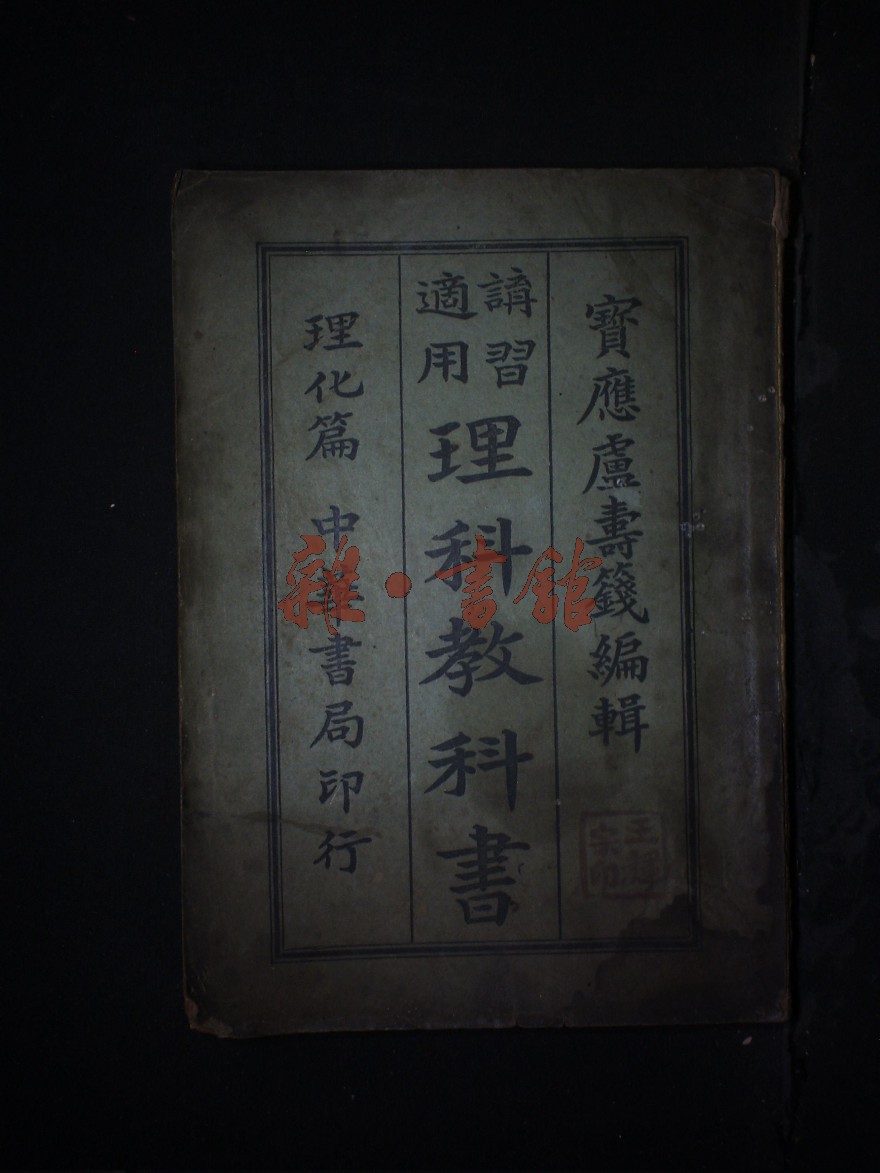 寶應盧壽籛編輯
講習
適用
理科教科書
理化篇 中華書局印行
雜·書館